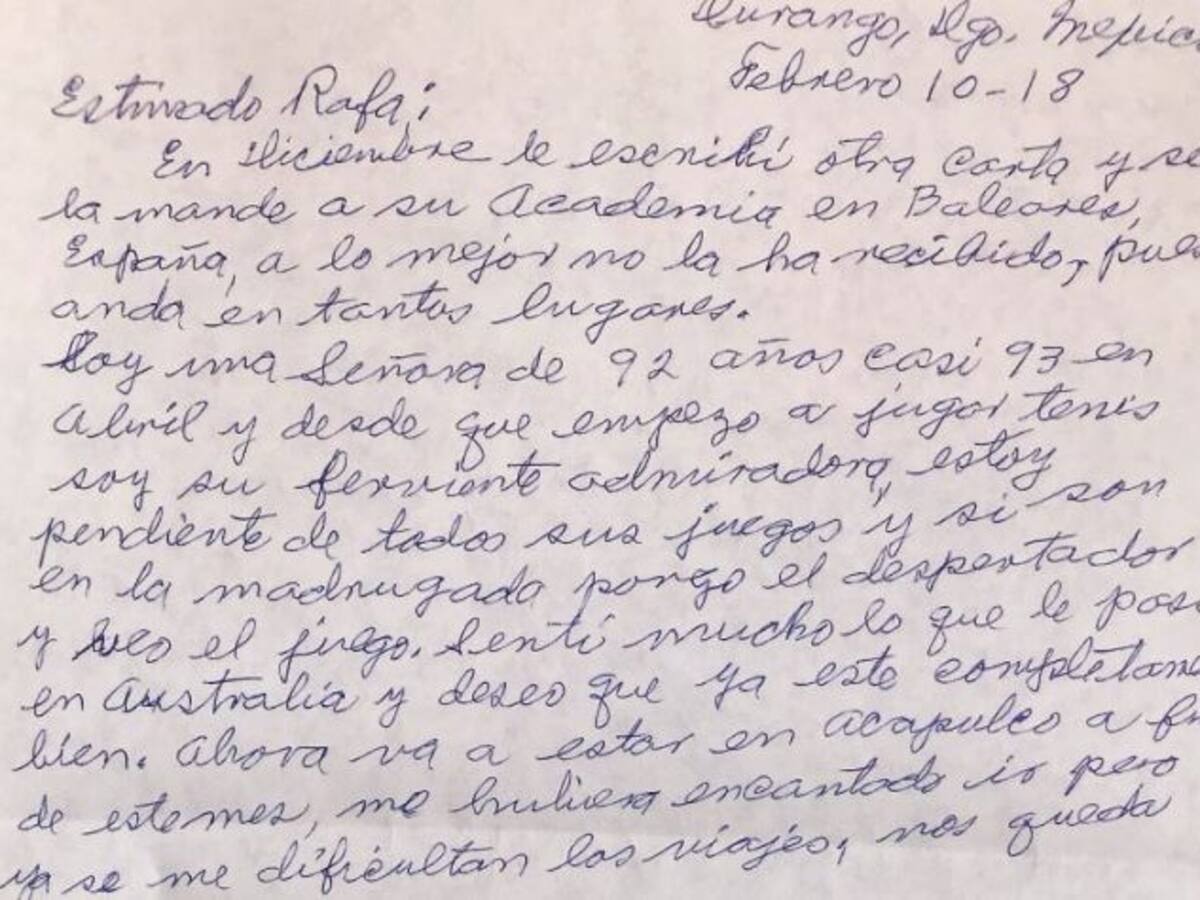 Durango, Dgo. Mexic
Febrero 10-18
Estimado Rafa;
En Diciembre le escribí otra carta y se
la mande a su Academia en Baleares,
España, a lo mejor no la ha recibido, pues
anda en tantos lugares.
Soy una Señora de 92 años casi 93 en
Abril y desde que empezo a jugar tenis
soy su ferviente admiradora, estoy
pendiente de todos sus juegos y si son
en la madrugada pongo el despertador
y veo el juego. Sentí mucho lo que le pas
en Australia y deseo que ya este completame
bien. Ahora va a estar en Acapulco a fi
de estemes, me hubiera encantado ir pero
ya se me dificultan los viajes, nos queda